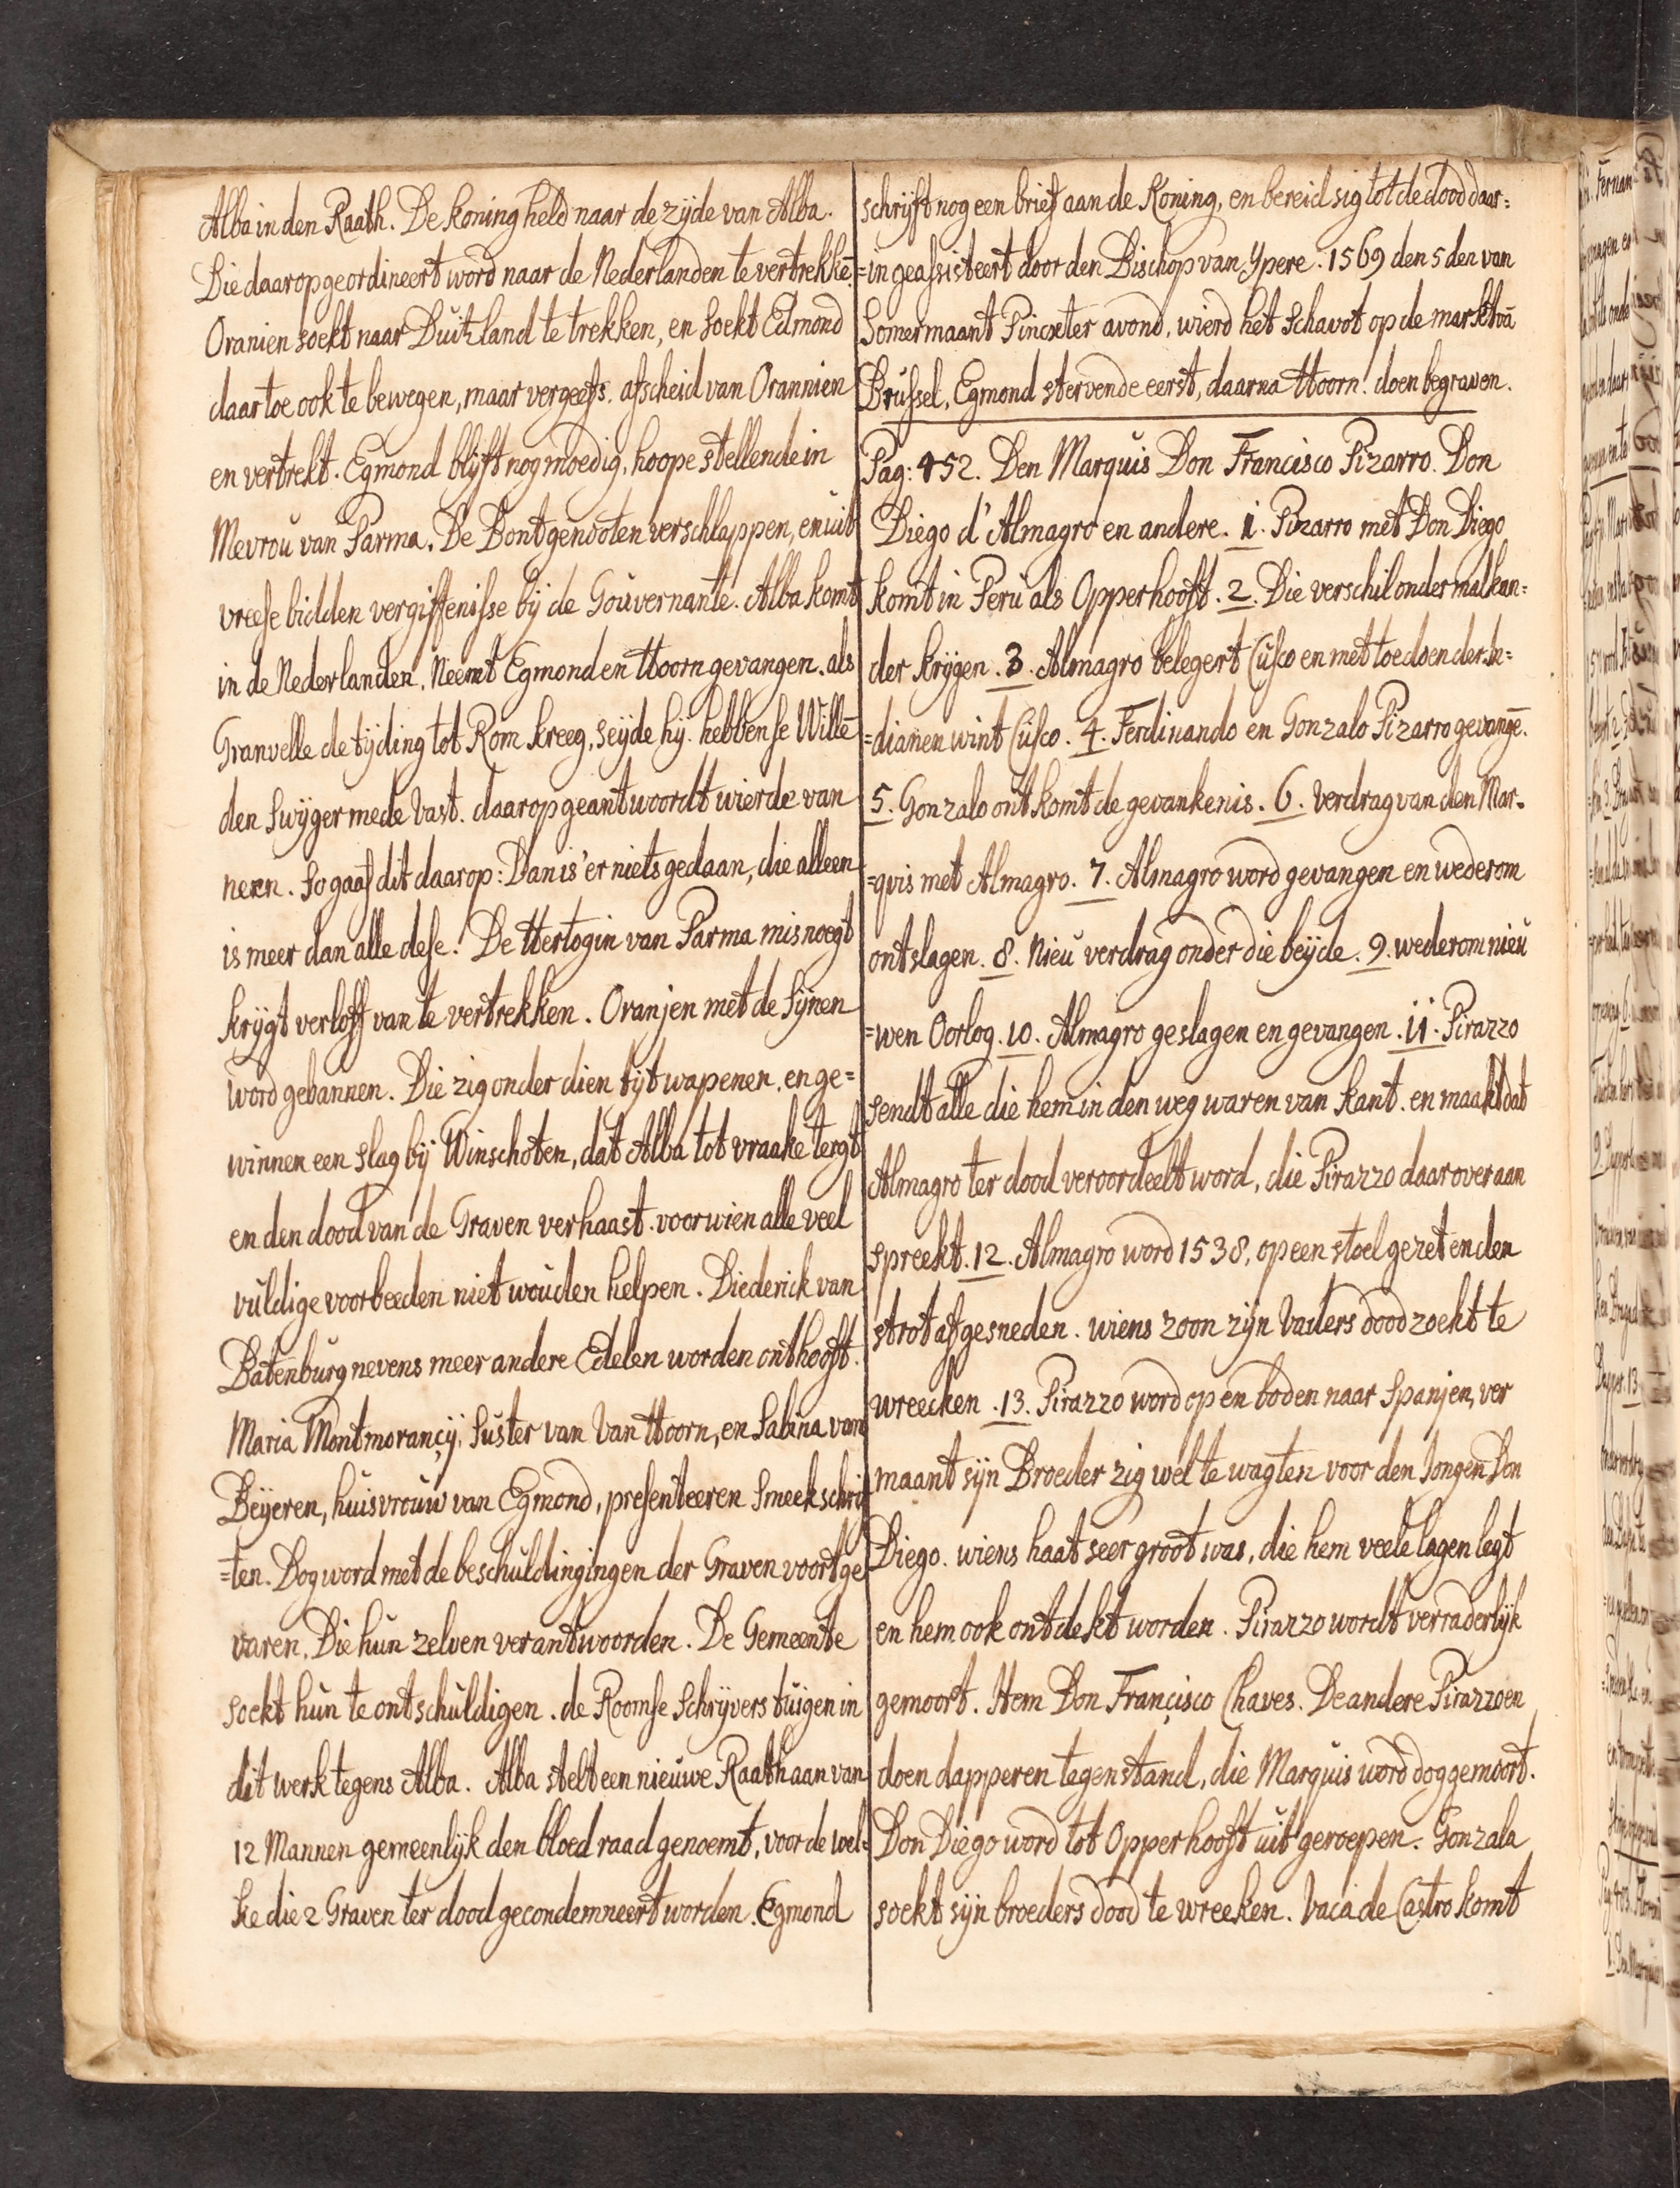 Alba in den Raath. De koning held naar de zijde van Alba.
Die daar op geordineert word naar de Nederlanden te vertrekkē.
Oranien soekt naar Duitzland te trekken, en soekt Edmond
daar toe ook te bewegen, maar vergeefs. afscheid van Orannien
en vertrekt. Egmond blijft nog moedig, hoope stellende in
Mevrou van Parma. De Bontgenoten verschlappen, en uit
vreese bidden vergiffenisse bij de Gouvernante. Alba komt
in de Nederlanden. Neemt Egmond en Hoorn gevangen. als
Granvelle de tijding tot Rom kreeg, seijde hij. hebben se Willē
den Swijger mede Vast. daar op geantwoordt wierde van
neen. So gaaf dit daarop: Dan is 'er niets gedaan, die alleen
is meer dan alle dese! De Hertogin van Parma misnoegt
krijgt verloff van te vertrekken. Oranjen met de Sijnen
word gebannen. Die zig onder dien tijt wapenen. en ge=
winnen een slag bij Winschoten, dat Alba tot vraake tergt
en den dood van de Graven verhaast. voor wien alle veel
vuldige voorbeeden niet wouden helpen. Diederick van
Batenburg nevens meer andere Edelen worden onthooft.
Maria Montmorancij, Suster van Van Hoorn, en Sabina van
Beijeren, huisvrouw van Egmond, presenteeren Smeekschrif
=ten. Dog word met de beschuldingingen der Graven voortge
varen. Die hun zelven verantwoorden. De Gemeente
soekt hun te ontschuldigen. de Roomse Schrijvers tuigen in
dit werk tegens Alba. Alba stelt een nieuwe Raath aan van
12 Mannen gemeenlijk den bloed raad genoemt, voor de wel=
ke die 2 Graven ter dood gecondemneert worden. Egmond
schrijft nog een brief aan de Koning, en bereid sig tot de dood daar=
=in geassisteert door den Bischop van Ypere. 1569 den 5 den van
Somermaant Pincxter avond, wierd het Schavot op de markt vā
Brussel, Egmond stervende eerst, daarna Hoorn. doen begraven.
Pag: 452. Den Marquis Don Francisco Pizarro. Don
Diego d'Almagro en andere. 1. Pizarro met Don Diego
komt in Peru als Opperhooft. 2. Die verschil onder malkan=
der krijgen. 3. Almagro belegert Cusco en met toedoen der In=
=dianen wint Cusco. 4. Ferdinando en Gonzalo Pizarro gevangē.
5. Gonzalo ontkomt de gevankenis. 6. Verdrag van den Mar-
=quis met Almagro. 7. Almagro word gevangen en wederom
ontslagen. 8. Nieu verdrag onder die beijde. 9. wederom nieu
=wen Oorlog. 10. Almagro geslagen en gevangen. 11. Pirazzo
sendt alle die hem in den weg waren van kant. en maakt dat
Almagro ter dood veroordeelt word, die Pirazzo daar over aan
spreekt. 12. Almagro word 1538. op een stoel gezet en den
strot afgesneden. wiens zoon zijn Vaders dood zoekt te
wreecken. 13. Pirazzo word op en boden naar Spanjen, ver
maant sijn Broeder zig wel te wagten voor den Jongen Don
Diego. wiens haat seer groot was, die hem veele lagen legt
en hem ook ontdekt worden. Pirazzo wordt verraderlijk
gemoort. Item Don Francisco Chaves. De andere Pirazzoen
doen dapperen tegenstand, die Marquis word dog gemoort.
Don Diego word tot Opperhooft uit geroepen. Gonzala
soekt sijn broeders dood te wreeken. Vaca de Castro komt